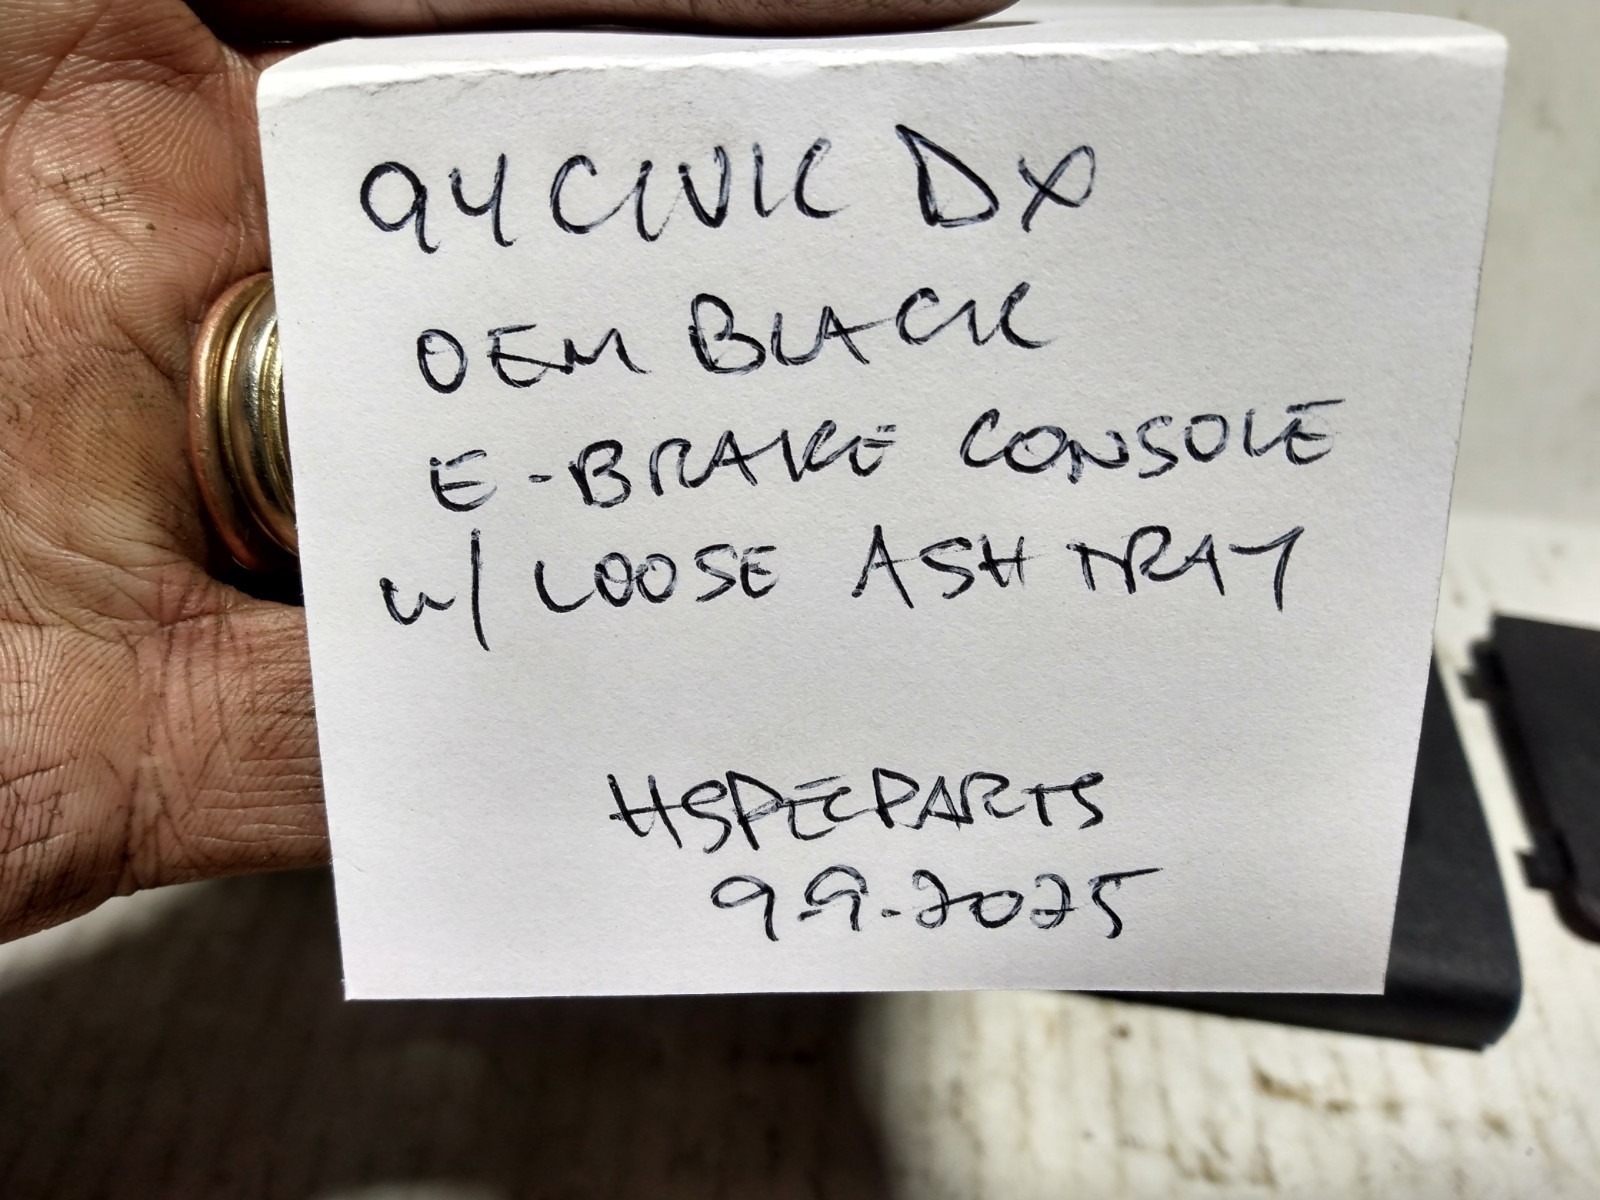 94 CIVIC DX
OEM BLACK
E-BRAKE CONSOLE
W/ LOOSE ASH TRAY
HSPECPARTS
9-9-2025